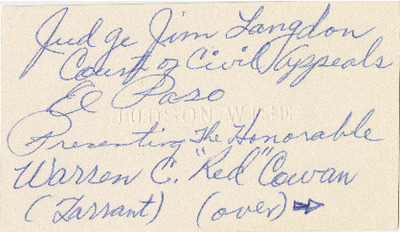 Judge Jim Langdon
Court of Civil Appeals
El Paso
JUDSON WISE
Presenting The Honorable
Warren C. "Red" Cowan
(Tarrant) (over) →